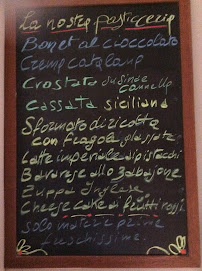 La nostra pasticceria
Bonet al cioccolato
Crema catalana
Crostata
cannella
Cassata siciliana
Sformato di ricotta
con fragole glassate
Latte imperiale di pistacchi
Bavarese allo Zabajone
Zuppa Inglese
Cheese cake di frutti rossi
solo materie prime
freschissime.